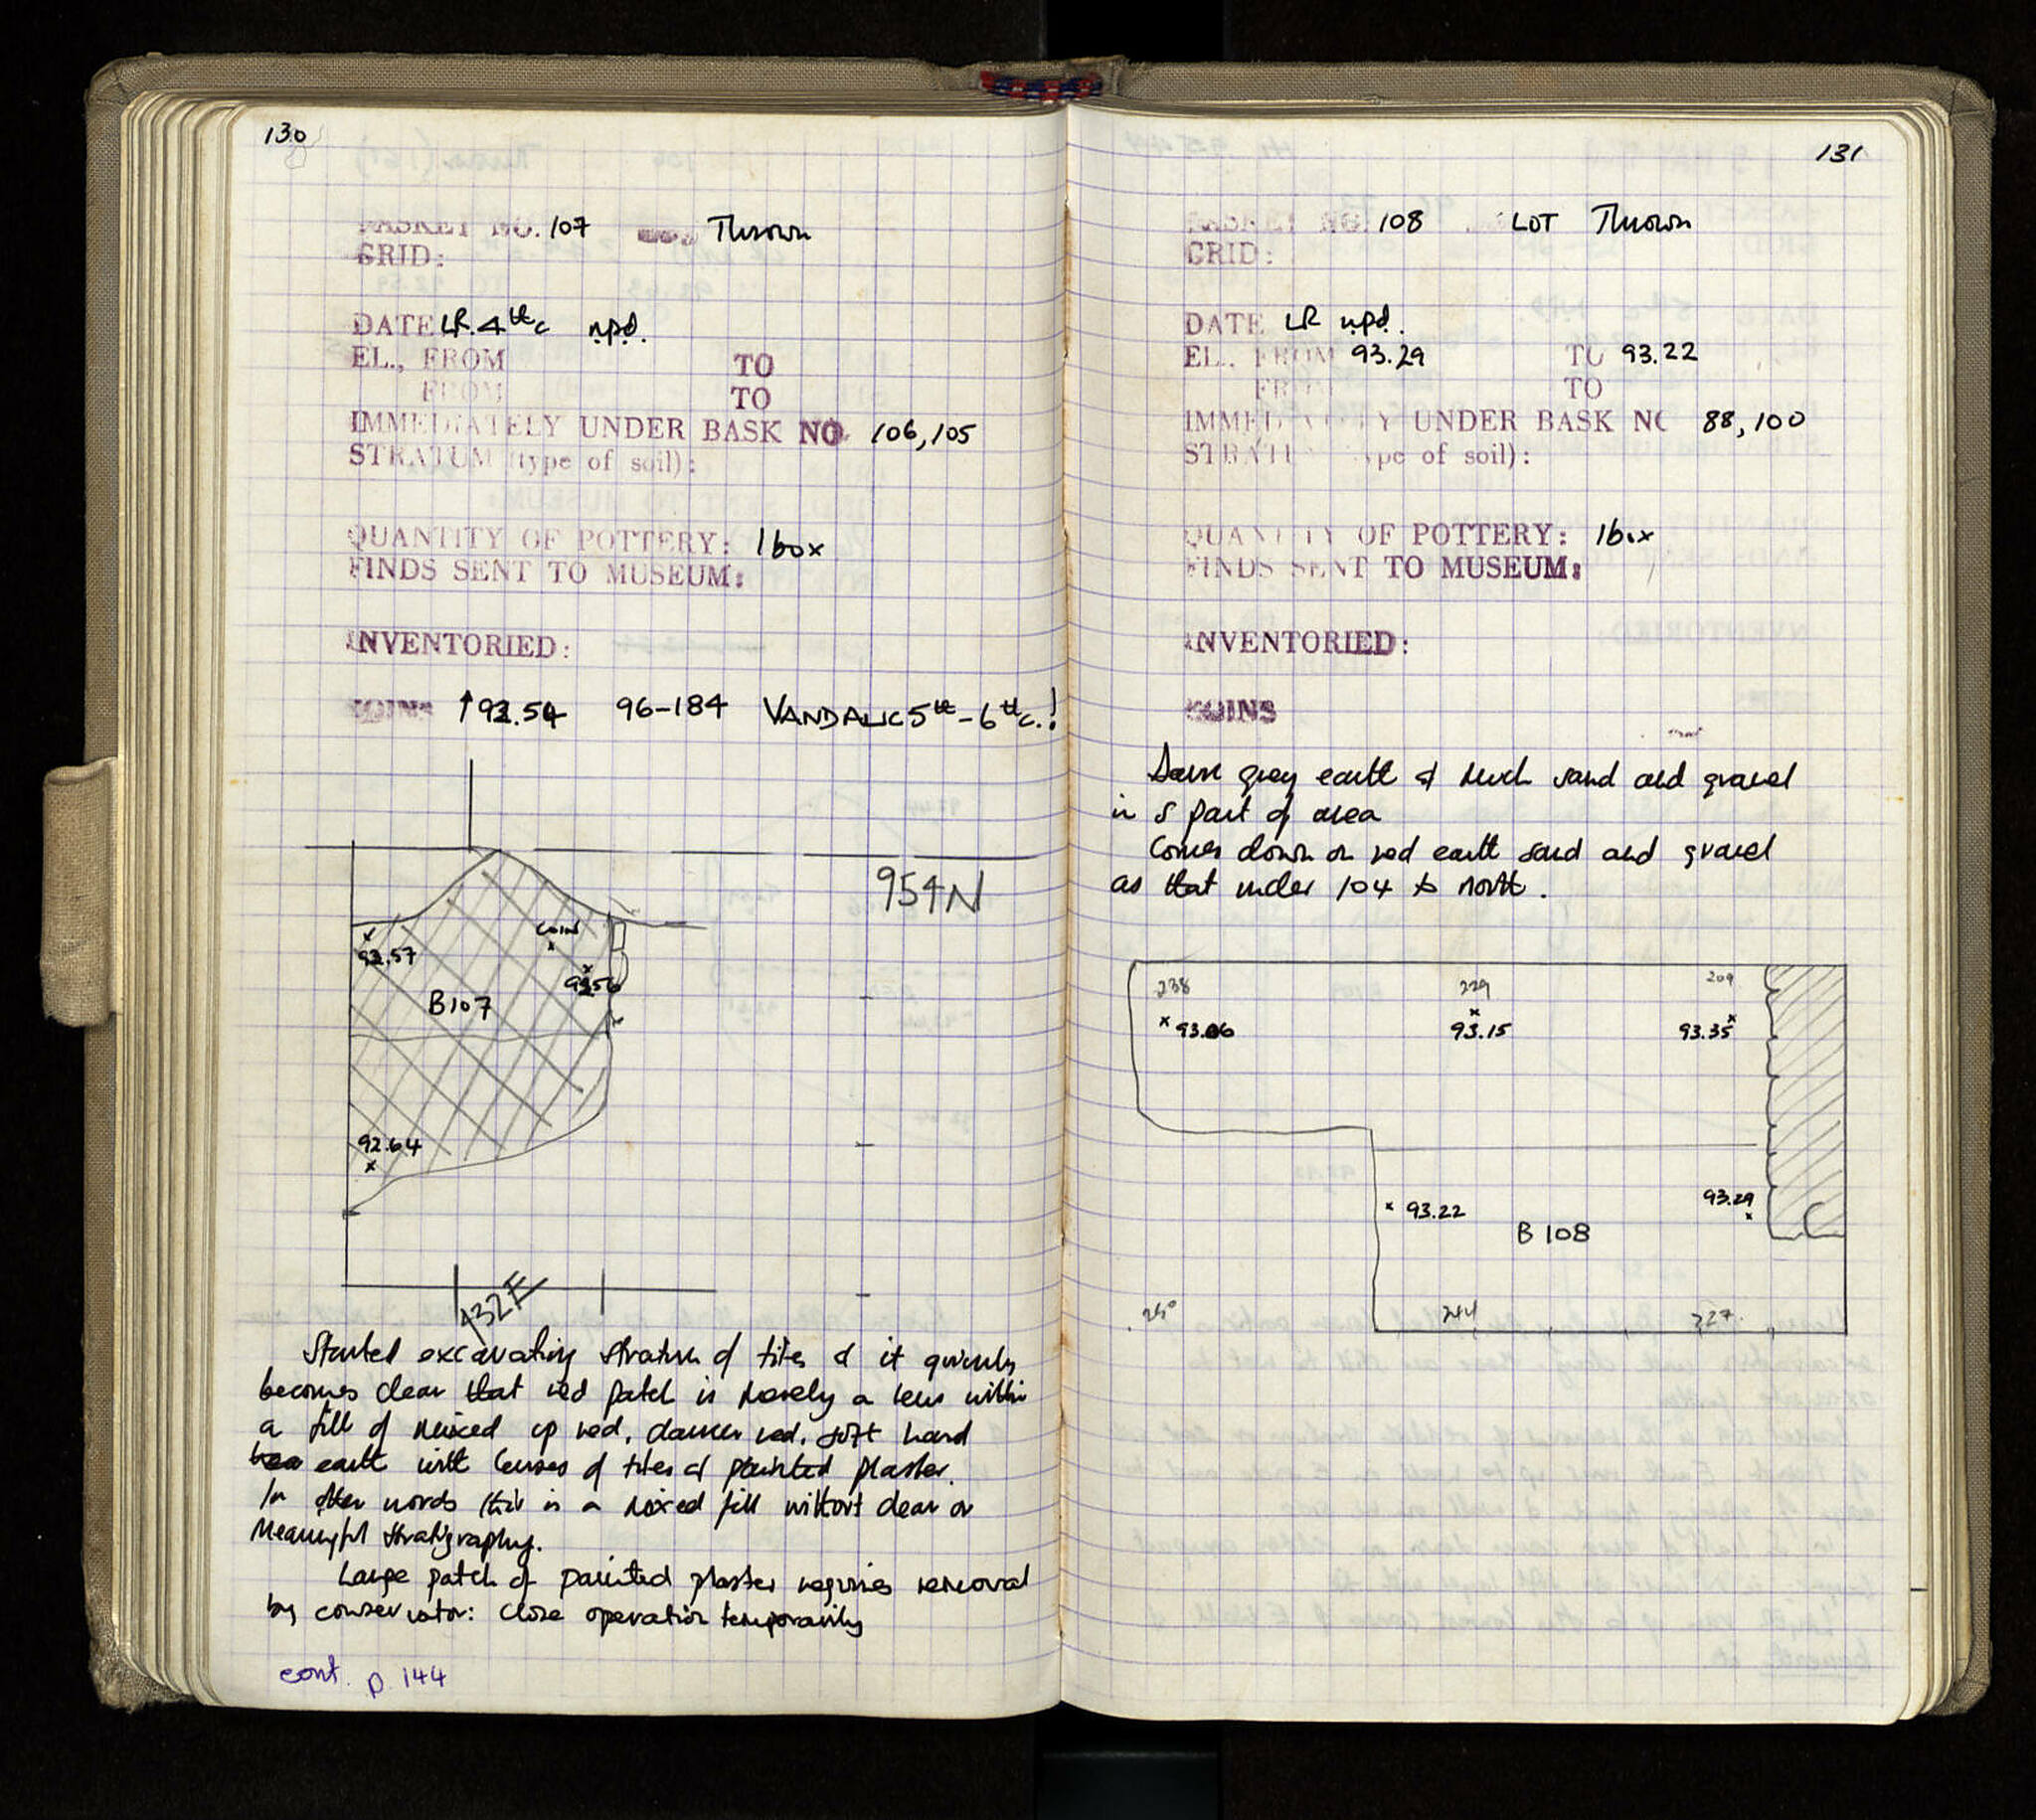 130
BASKET NO. 107 Thrown
GRID:
DATE LR. 4th c n.p.d.
EL., FROM TO
FROM TO
IMMEDIATELY UNDER BASK NO. 106, 105
STRATUM (type of soil):
QUANTITY OF POTTERY: 1 box
FINDS SENT TO MUSEUM:
INVENTORIED:
COINS ↑92.54 96-184 VANDALIC 5th-6th c.!
954N
coin
92.57
92.56
B107
92.64
432E
Started excavating stratum of tiles & it quickly
becomes clear that red patch is merely a lens within
a fill of mixed up red, darker red, soft hard
earth with lenses of tiles & painted plaster.
In other words this is a mixed fill without clear or
meaningful stratigraphy.
Large patch of painted plaster requires removal
by conservator: close operation temporarily
cont. p. 144
131
BASKET NO. 108 LOT Thrown
GRID:
DATE LR n.p.d.
EL., FROM 93.29 TO 93.22
FROM TO
IMMEDIATELY UNDER BASK NO 88, 100
STRATUM (type of soil):
QUANTITY OF POTTERY: 1 box
FINDS SENT TO MUSEUM:
INVENTORIED:
COINS
Same grey earth & much sand and gravel
in S part of area
Comes down on red earth sand and gravel
as that under 104 to north.
238 229 209
93.06 93.15 93.35
93.22 93.29
B 108
244 227